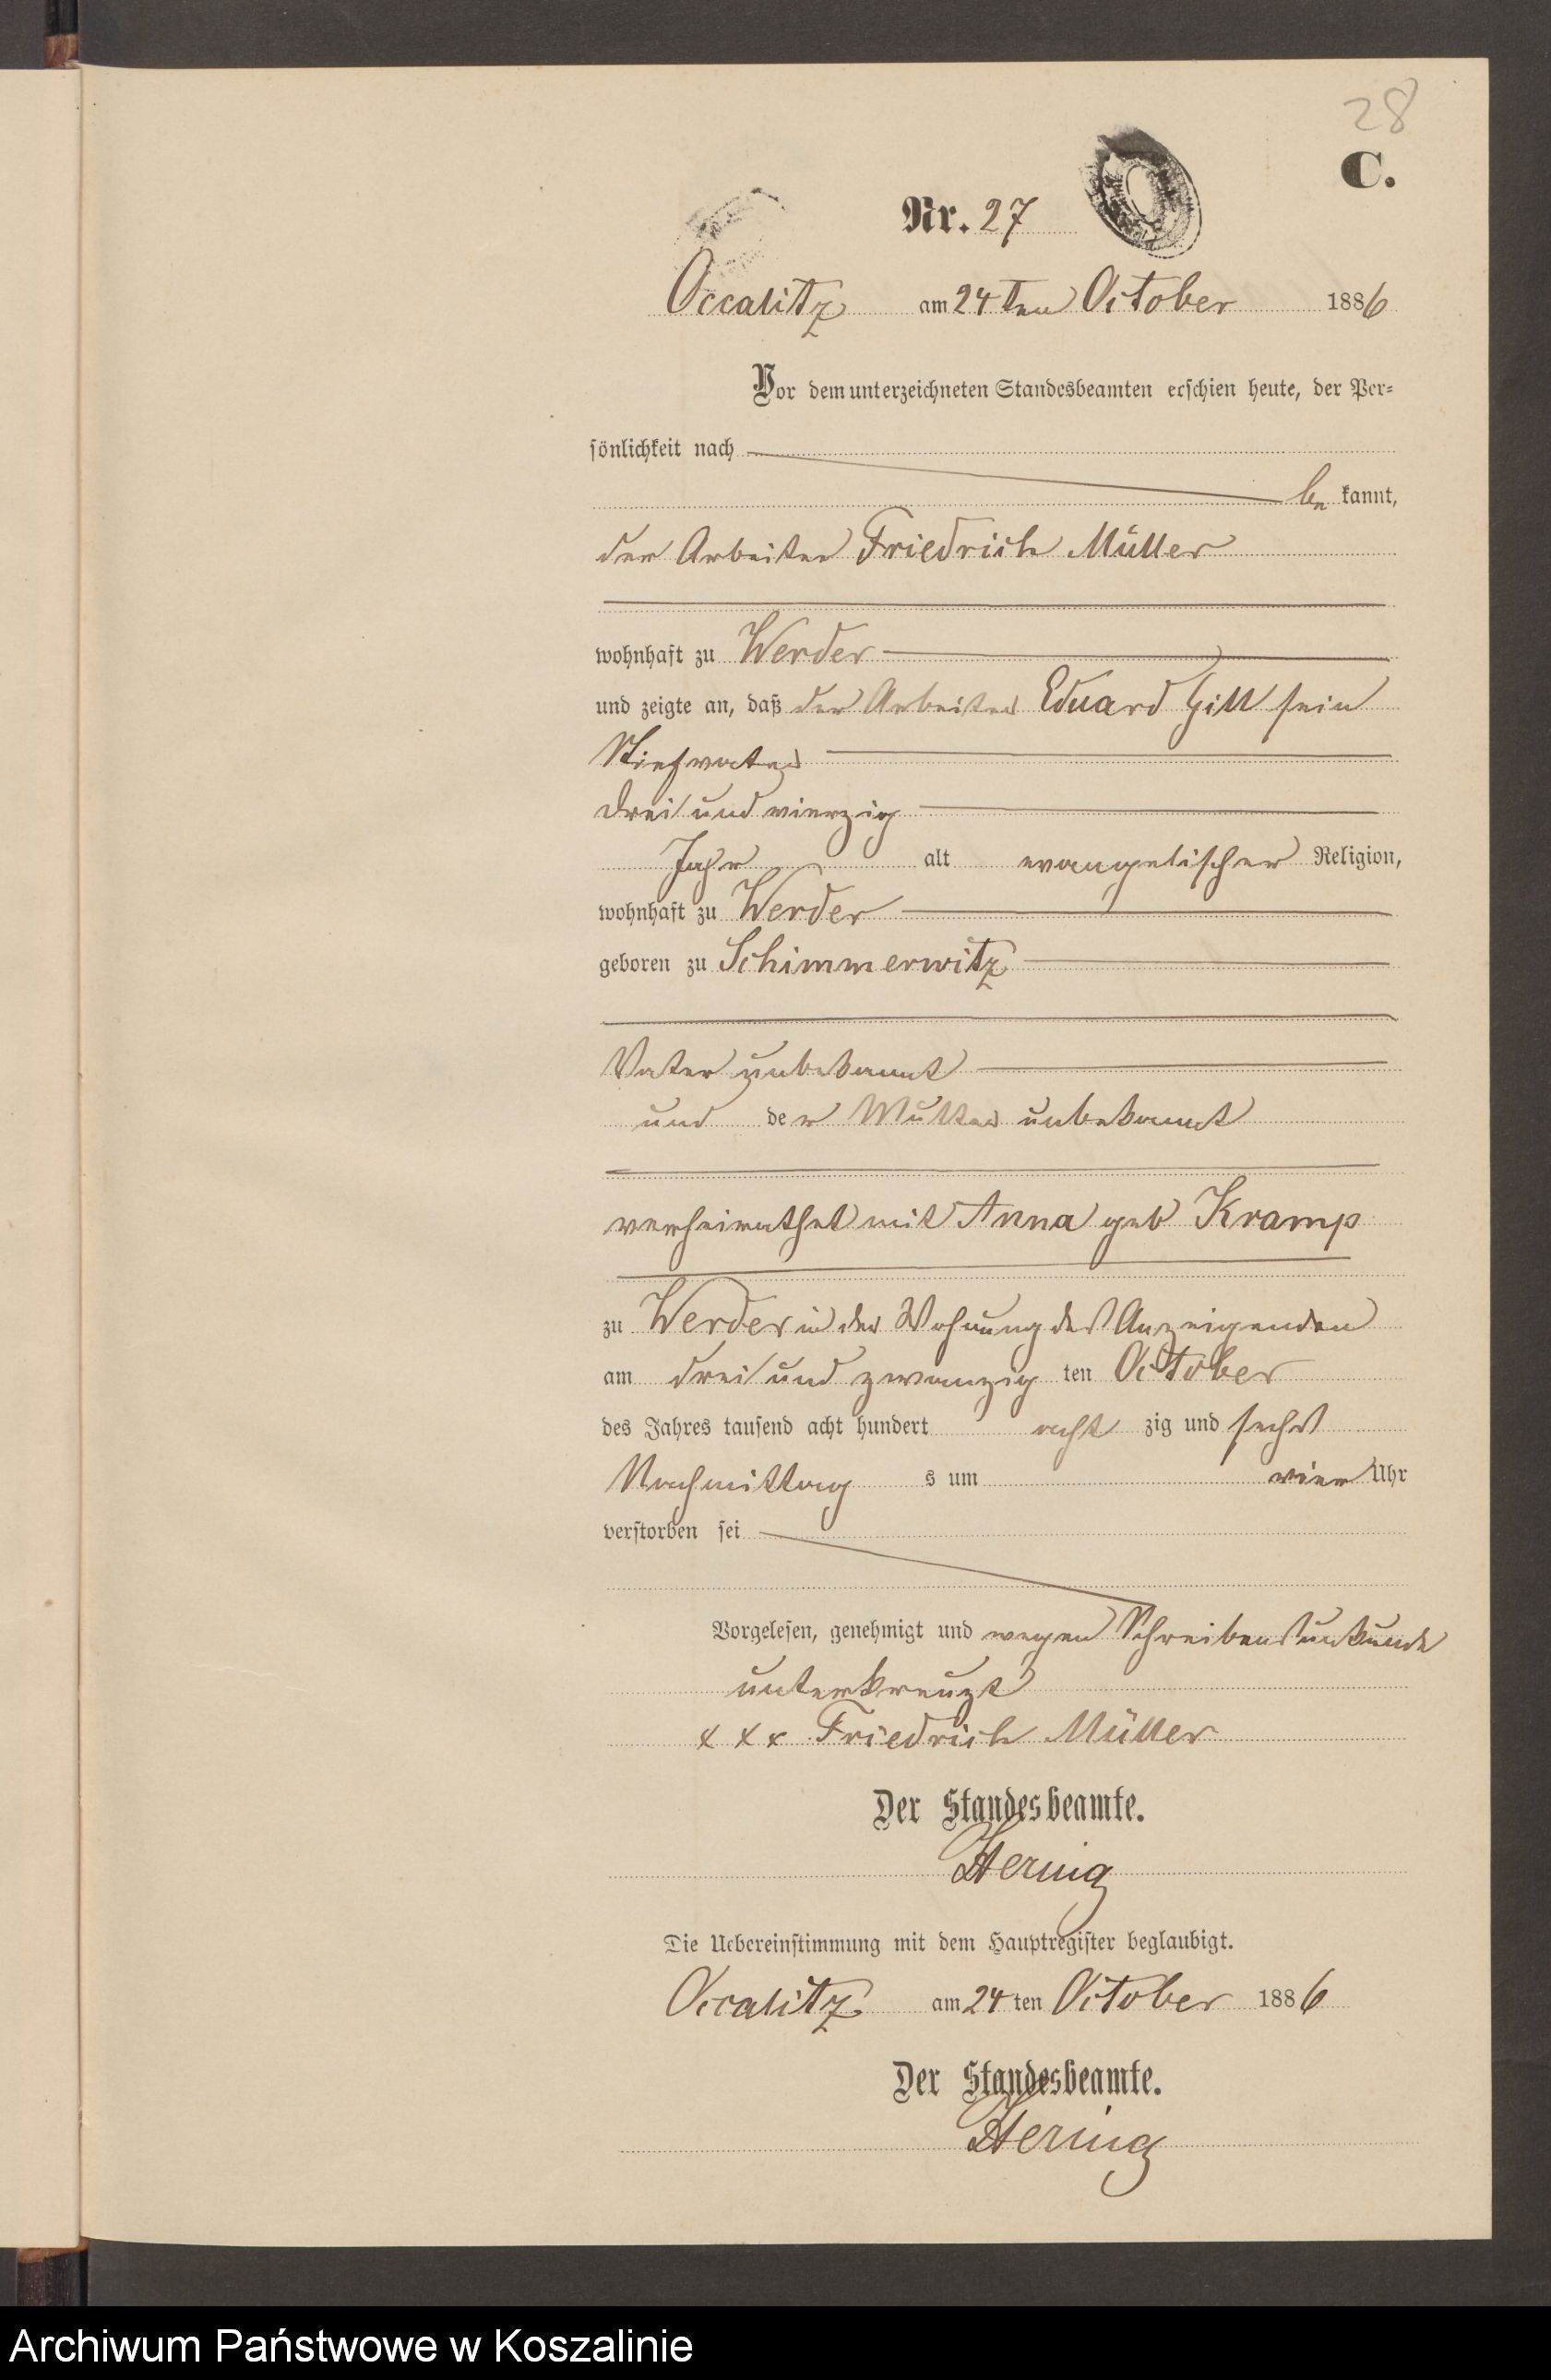 28
C.
Nr. 27
Occalitz am 24ten October 1886
Vor dem unterzeichneten Standesbeamten erschien heute, der Per-
sönlichkeit nach
be kannt,
der Arbeiter Friedrich Müller
wohnhaft zu Werder
und zeigte an, daß der Arbeiter Eduard Gill sein
Stiefvater
drei und vierzig
Jahr alt evangelischer Religion,
wohnhaft zu Werder
geboren zu Schimmerwitz
Vater unbekannt
und der Mutter unbekannt
verheirathet mit Anna geb Kramp
zu Werder in der Wohnung des Anzeigenden
am drei und zwanzig ten October
des Jahres tausend acht hundert acht zig und sechs
Nachmittag s um vier Uhr
verstorben sei
Vorgelesen, genehmigt und wegen Schreibensunkunde
unterkreuzt
x x x Friedrich Müller
Der Standesbeamte.
Hering
Die Uebereinstimmung mit dem Hauptregister beglaubigt.
Occalitz am 24 ten October 1886
Der Standesbeamte.
Hering
Archiwum Państwowe w Koszalinie